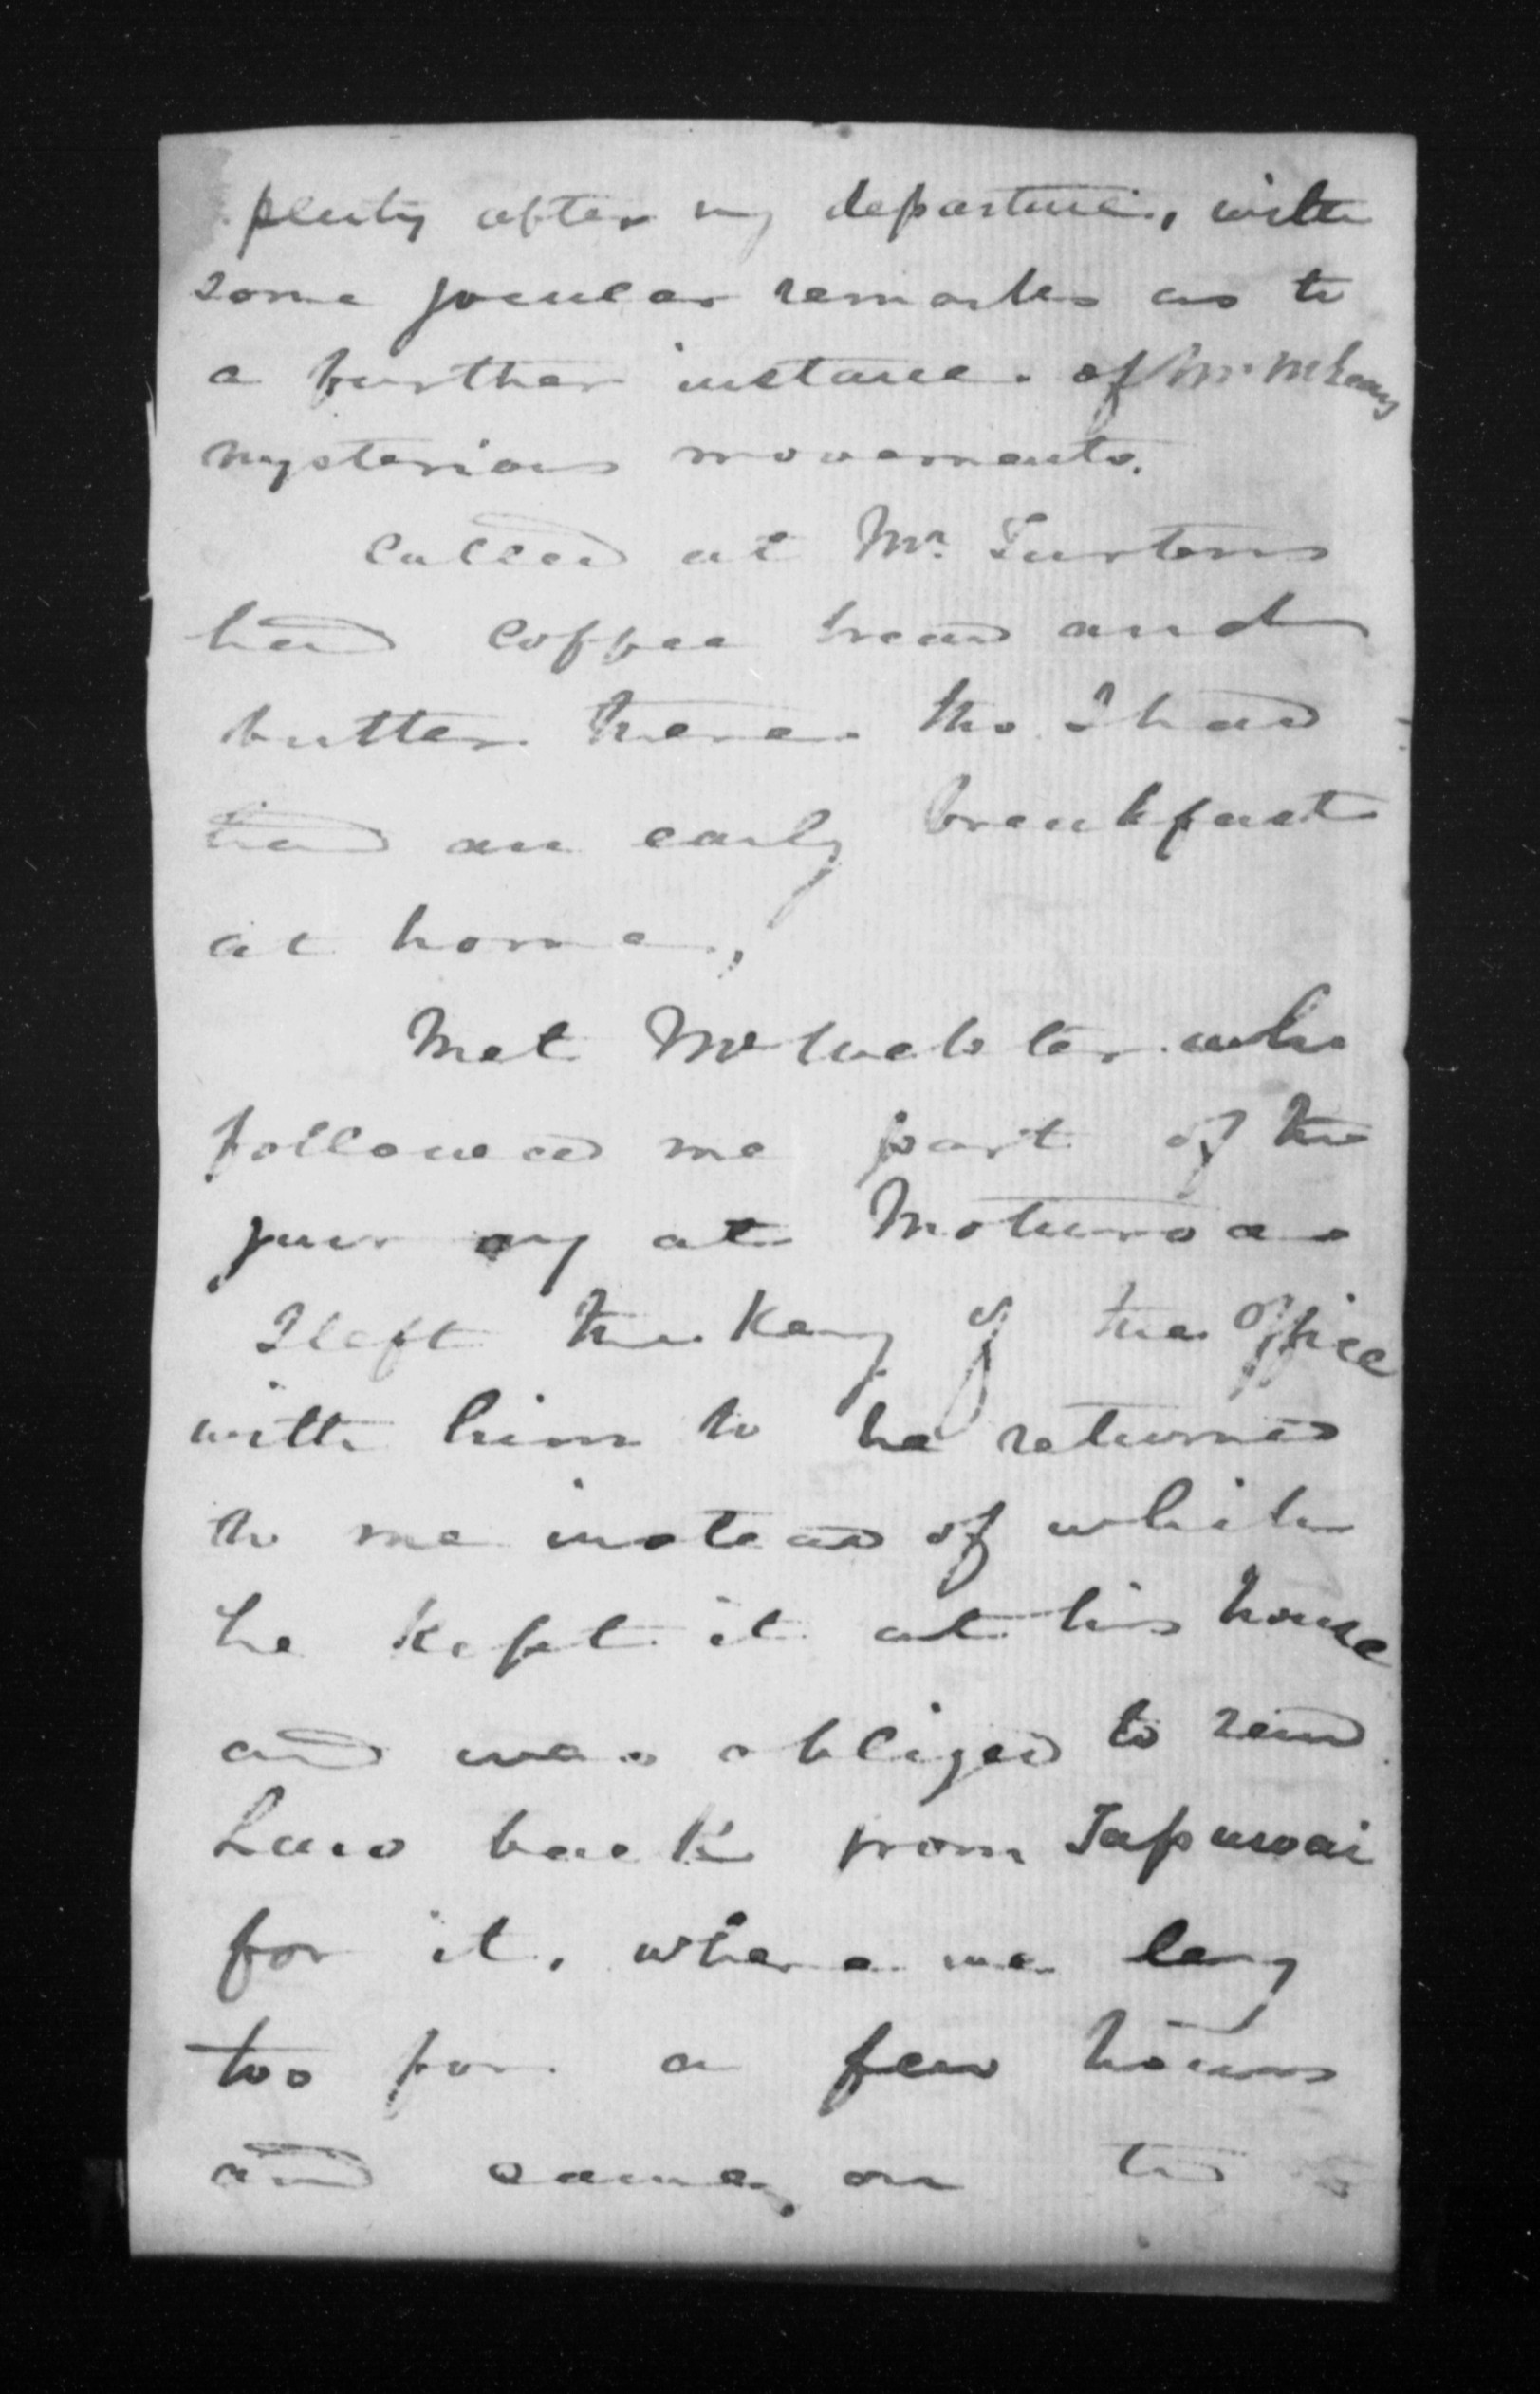 plenty after my departure, with
some jocular remarks as to
a further instance of Mr. McLeans
mysterious movements.
Called at Mr. Turtons
had coffee bread and
butter there tho I had
had an early breakfast
at home,
Met Mr Webster who
followed me part of the
jour ny at Moturoa
I left the Key of the Office
with him to be returned
to me instead of which
he kept it at his house
and was obliged to send
Law back from Tapuwai
for it. where we lay
too for a few hours
and came on to